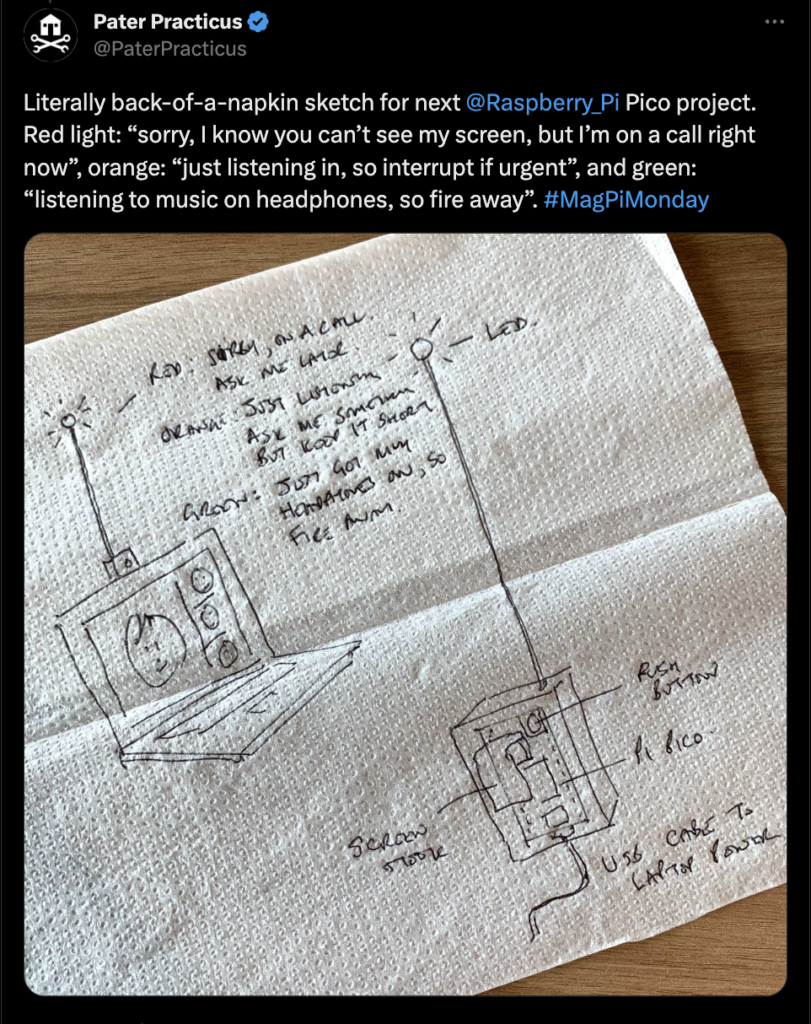 Pater Practicus
@PaterPracticus
Literally back-of-a-napkin sketch for next @Raspberry_Pi Pico project.
Red light: “sorry, I know you can’t see my screen, but I’m on a call right
now”, orange: “just listening in, so interrupt if urgent”, and green:
“listening to music on headphones, so fire away”. #MagPiMonday
RED: SORRY, ON A CALL.
ASK ME LATER.
ORANGE: JUST LISTENING
ASK ME SOMETHING
BUT KEEP IT SHORT
GREEN: JUST GOT MY
HEADPHONES ON, SO
FIRE AWAY.
LED.
PUSH
BUTTON
Pi PICO
SCREEN
USB CABLE TO
LAPTOP POWER